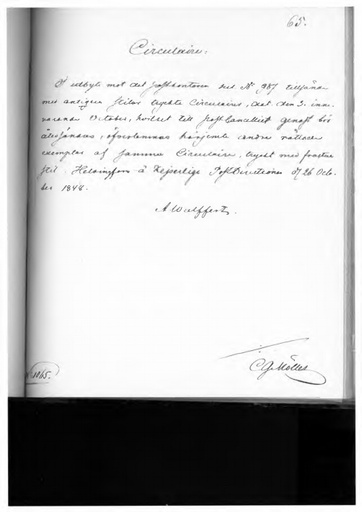 65.
Circulaire.
I utbyte mot det Postkontoren sub N° 987 tillsända
med antiqua stilar tryckta Circulaire, dat. den 3. inne-
varande October, hvilket till Postcancelliet genast bör
återsändas, öfversändes härjemte andra rättade
exemplar af samma Circulaire, tryckt med finstur
stil. Helsingfors å Kejserliga Postdirectionen d/ 26 Octo-
ber 1848.
A Wulffert.
C G Möller
N° 1065.